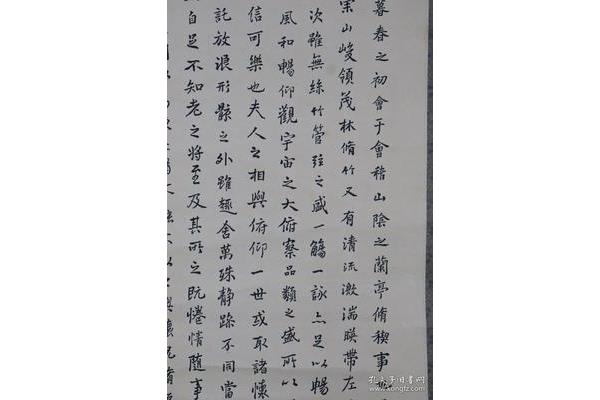 暮春之初會于會稽山陰之蘭亭脩稧事也
崇山峻領茂林脩竹又有清流激湍暎帶左
次雖無絲竹管弦之盛一觴一詠亦足以暢
風和暢仰觀宇宙之大俯察品類之盛所以
信可樂也夫人之相與俯仰一世或取諸懷
託放浪形骸之外雖趣舍萬殊靜躁不同當
自足不知老之將至及其所之既惓情隨事
不以之興懷況脩
孔夫子旧书网
www.kongfz.com